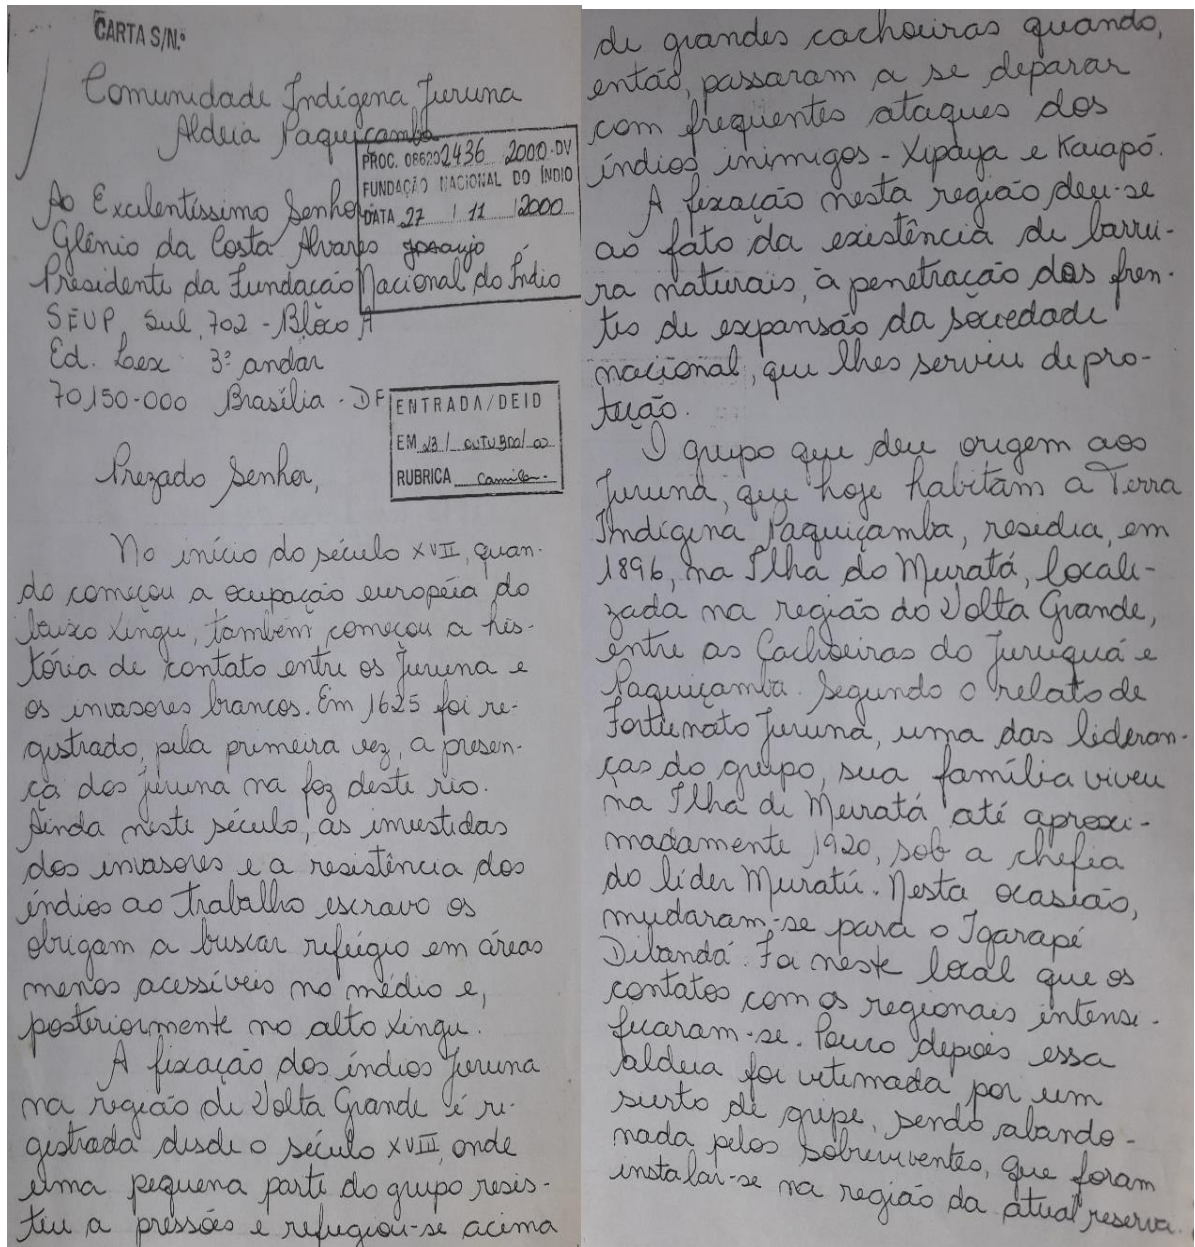 CARTA S/N.º
Comunidade Indígena Juruna
Aldeia Paquiçamba
PROC. 08620 2436 2000-DV
FUNDAÇÃO NACIONAL DO ÍNDIO
DATA 27 / 11 / 2000
Ao Excelentíssimo Senhor
Glênio da Costa Alvares
Presidente da Fundação Nacional do Índio
SEUP, Sul, 702 - Bloco A
Ed. Lex 3º andar
70150-000 Brasília - DF
ENTRADA/DEID
EM 23 / outubro / 00
RUBRICA Camila
Prezado Senhor,
No início do século XVII, quan-
do começou a ocupação européia do
baixo Xingu, também começou a his-
tória de contato entre os Juruna e
os invasores brancos. Em 1625 foi re-
gistrado, pela primeira vez, a presen-
ça dos juruna na foz deste rio.
Ainda neste século, as investidas
dos invasores e a resistência dos
índios ao trabalho escravo os
obrigam a buscar refúgio em áreas
menos acessíveis no médio e,
posteriormente no alto Xingu.
A fixação dos índios Juruna
na região de Volta Grande é re-
gistrada desde o século XVIII, onde
uma pequena parte do grupo resis-
tiu a pressões e refugiou-se acima
de grandes cachoeiras quando,
então, passaram a se deparar
com freqüentes ataques dos
índios inimigos - Xipaya e Kaiapó.
A fixação nesta região deu-se
ao fato da existência de barrei-
ra naturais, à penetração das fren-
tes de expansão da sociedade
nacional, que lhes serviu de pro-
teção.
O grupo que deu origem aos
Juruna, que hoje habitam a Terra
Indígena Paquiçamba, residia, em
1896, na Ilha do Muratá, locali-
zada na região do Volta Grande,
entre as Cachoeiras do Juruguá e
Paquiçamba. Segundo o relato de
Fortunato Juruna, uma das lideran-
ças do grupo, sua família viveu
na Ilha de Muratá até aproxi-
madamente 1920, sob a chefia
do líder Muratú. Nesta ocasião,
mudaram-se para o Igarapé
Dilandá. Foi neste local que os
contatos com os regionais intensi-
ficaram-se. Pouco depois essa
aldeia foi vitimada por um
surto de gripe, sendo abando-
nada pelos sobreviventes, que foram
instalar-se na região da atual reserva.